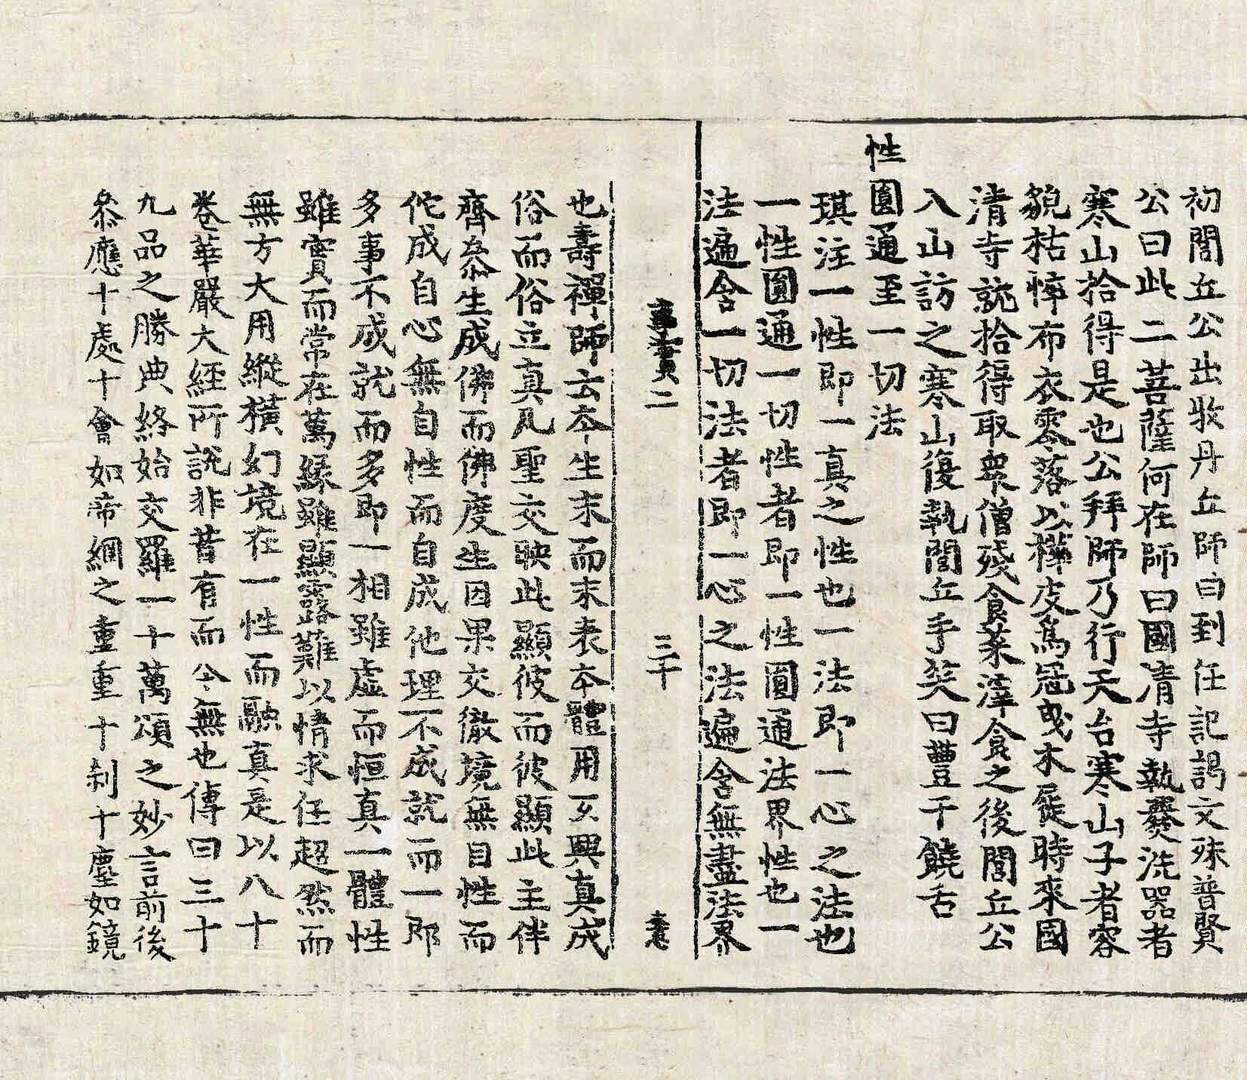 初閭丘公出牧丹丘師曰到任記謁文殊普賢
公曰此二菩薩何在師曰國清寺執爨洗器者
寒山拾得是也公拜師乃行天台寒山子者容
貌枯悴布衣零落以樺皮爲冠曳木屐時來國
清寺就拾得取衆僧殘食菜滓食之後閭丘公
入山訪之寒山復執閭丘手笑曰豊干饒舌
性圓通至一切法
琪注一性即一真之性也一法即一心之法也
一性圓通一切性者即一性圓通法界性也一
法遍含一切法者即一心之法遍含無盡法界
事實二 三十
也壽禪師云夲生末而末表夲體用互興真成
俗而俗立真凡聖交映此顯彼而彼顯此主伴
齊叅生成佛而佛度生因果交徹境無自性而
佗成自心無自性而自成他理不成就而一即
多事不成就而多即一相雖虛而恒真一體性
雖實而常在萬緣雖顯露難以情求任超然而
無方大用縱橫幻境在一性而融真是以八十
卷華嚴大經所說非昔有而今無也傳曰三十
九品之勝典終始交羅一十萬頌之妙言前後
叅應十處十會如帝網之重重十刹十塵如鏡